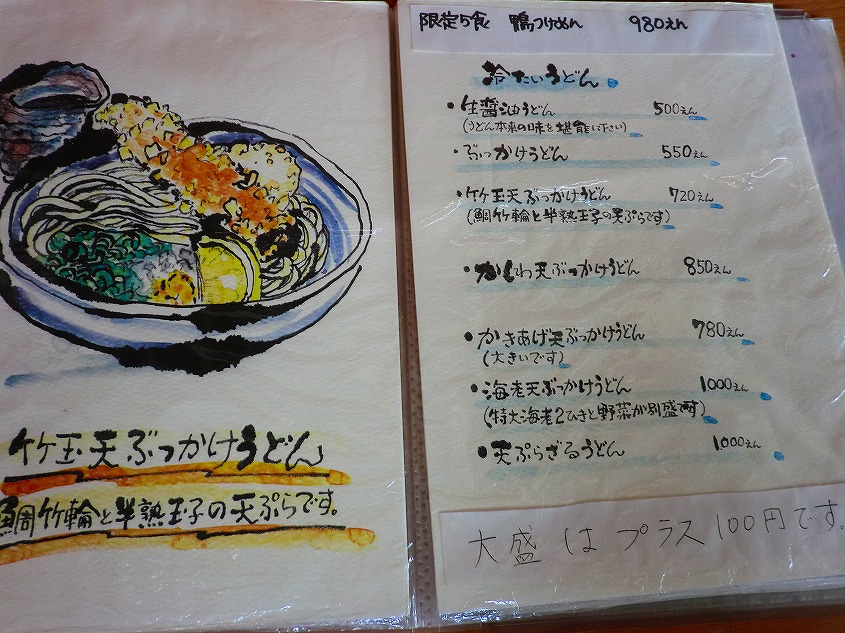 竹玉天ぶっかけうどん
鯛竹輪と半熟玉子の天ぷらです。
限定5食 鴨つけめん 980えん
冷たいうどん
・生醤油うどん 500えん
(うどん本来の味を堪能して下さい)
・ぶっかけうどん 550えん
・竹玉天ぶっかけうどん 720えん
(鯛竹輪と半熟玉子の天ぷらです)
・かしわ天ぶっかけうどん 850えん
・かきあげ天ぶっかけうどん 780えん
(大きいです)
・海老天ぶっかけうどん 1000えん
(特大海老2ひきと野菜が別盛です)
・天ぷらざるうどん 1.000えん
大盛はプラス100円です。